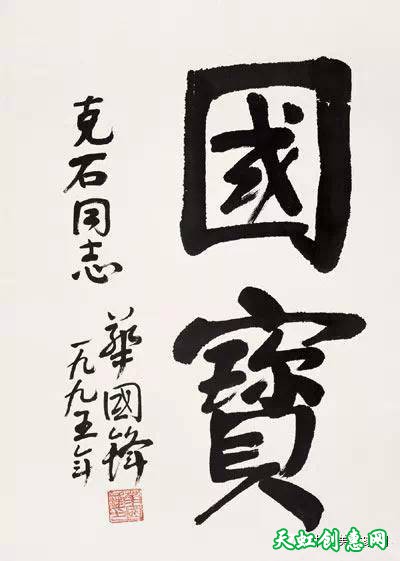 國寶
克石同志
華國鋒
一九九五年
天虹创惠网